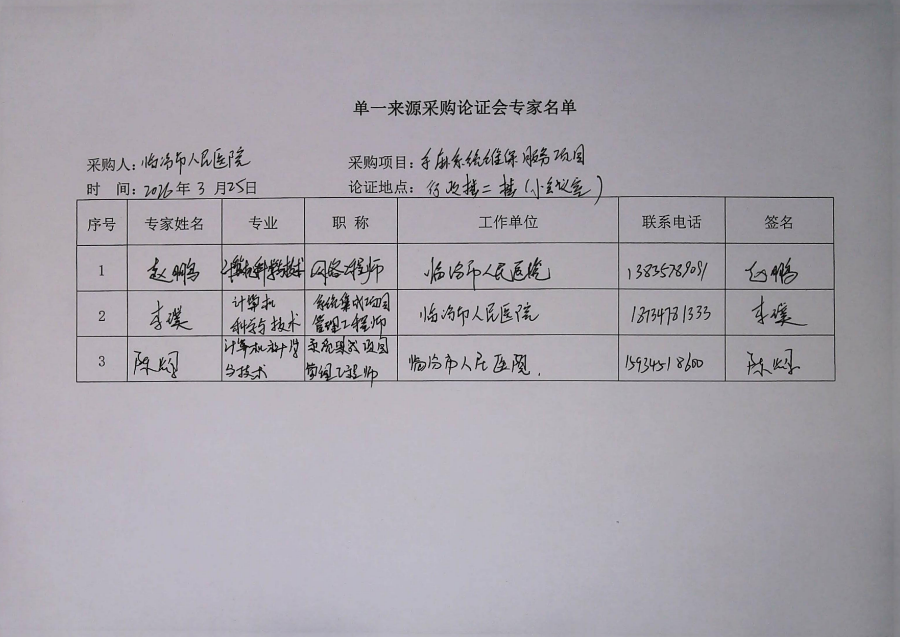 单一来源采购论证会专家名单
采购人：临汾市人民医院 采购项目：手麻系统维保服务项目
时 间：2026年3月25日 论证地点：行政楼二楼（小会议室）
序号 专家姓名 专业 职 称 工作单位 联系电话 签名
1 赵鹏 计算机科学与技术 网络工程师 临汾市人民医院 13835789091 赵鹏
2 李璞 计算机 科学与技术 系统集成项目 管理工程师 临汾市人民医院 18734781333 李璞
3 陈 计算机科学 与技术 系统集成项目 管理工程师 临汾市人民医院. 15934518600 陈